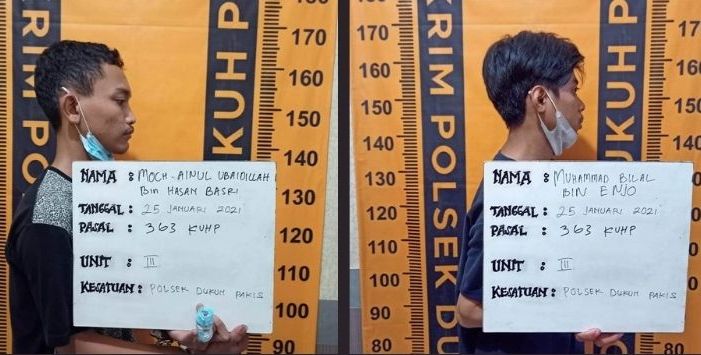 KRIM POLSEK DUKUH P
170
160
150
140
130
120
110
100
80
NAMA : MOCH. AINUL UBAIDILLAH
BIN HASAN BASRI
TANGGAL : 25 JANUARI 2021
PASAL : 363 KUHP
UNIT : III
KESATUAN : POLSEK DUKUH PAKIS
KRIM POLSEK DU
KUH P
170
160
150
140
130
120
110
100
90
80
NAMA : MUHAMMAD BILAL
BIN ENJO
TANGGAL : 25 JANUARI 2021
PASAL : 363 KUHP
UNIT : III
KESATUAN : POLSEK DUKUH PAKIS